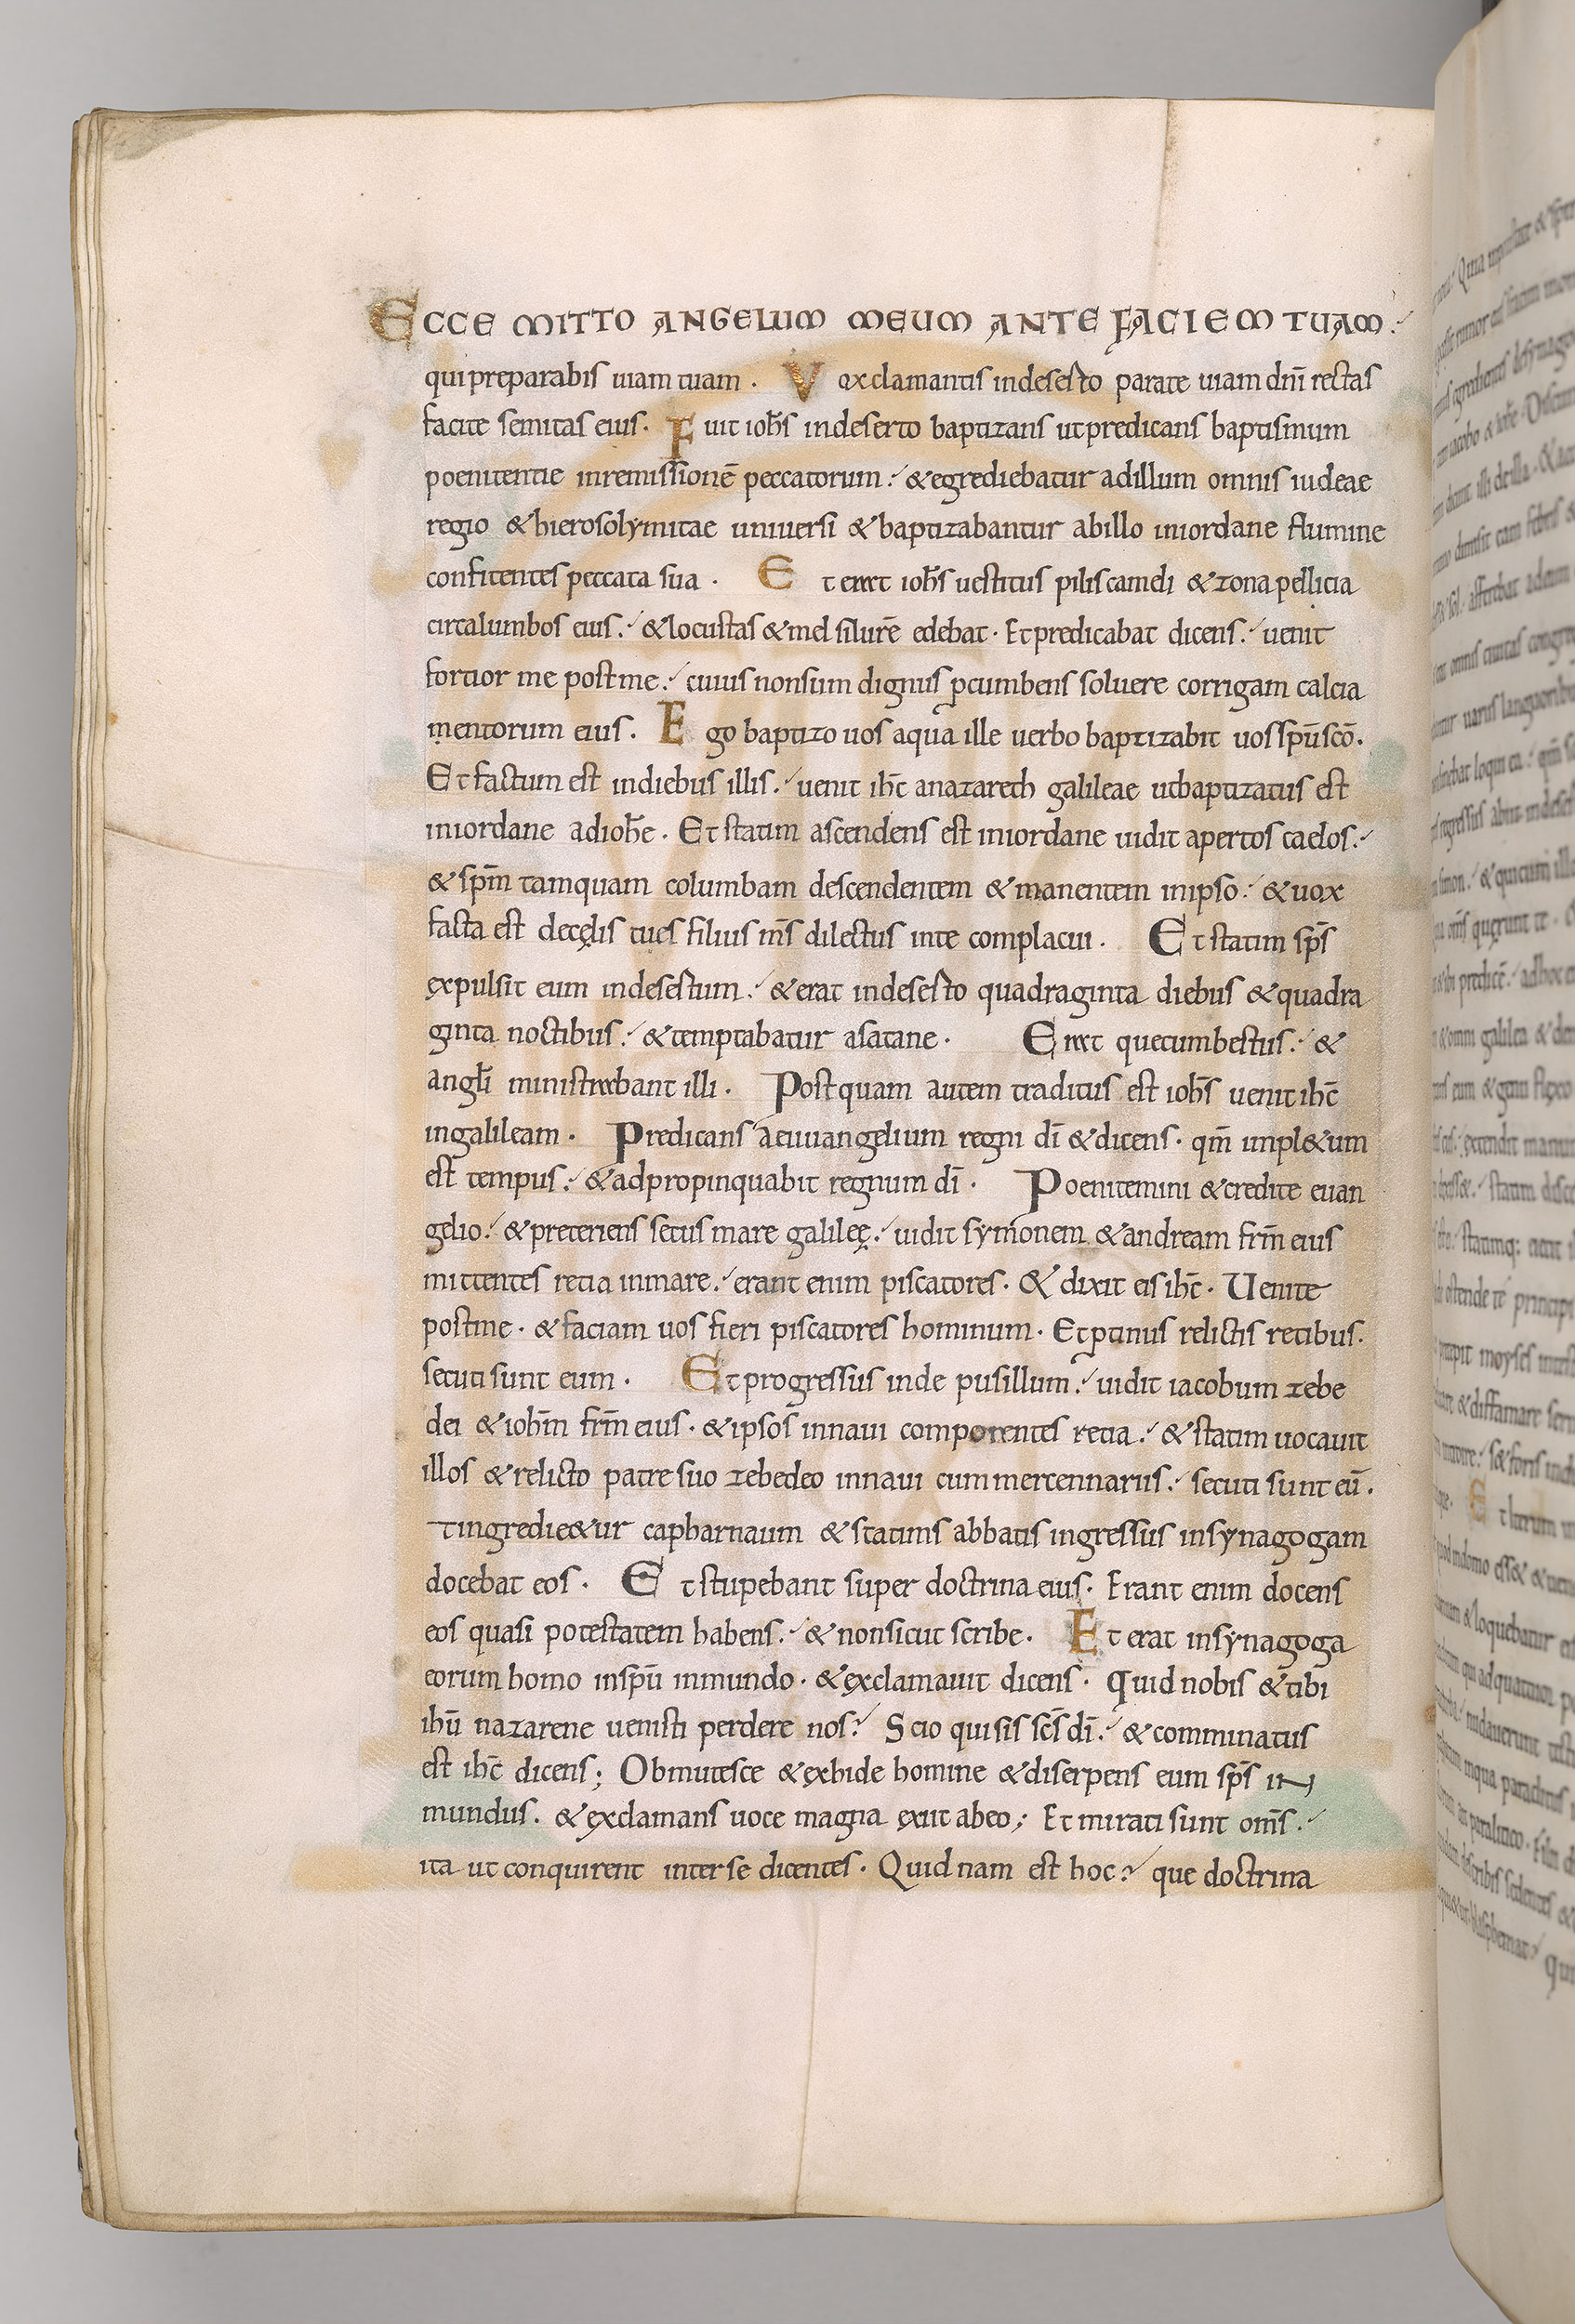 ECCE MITTO ANGELUM MEUM ANTE FACIEM TUAM.
qui preparabis uiam tuam. Vox clamantis in deserto parate uiam dnī rectas
facite semitas eius. Fuit iohs̄ in deserto baptizans ut predicans baptismum
poenitentie in remissionē peccatorum. & egrediebatur ad illum omnis iudeae
regio & hierosolymitae uniuersi & baptizabantur ab illo in iordane flumine
confitentes peccata sua. Et erat iohs̄ uestitus pilis cameli & zona pellicia
circa lumbos eius. & locustas & mel silurē edebat. Et predicabat dicens. uenit
fortior me post me. cuius non sum dignus pcumbens soluere corrigam calcia
mentorum eius. Ego baptizo uos aqua ille uerbo baptizabit uos spū scō.
Et factum est in diebus illis. uenit ihc̄ a nazareth galileae ut baptizatus est
in iordane ad iohē. Et statim ascendens est in iordane uidit apertos caelos.
& spm̄ tamquam columbam descendentem & manentem in ipso. & uox
facta est de cęlis tu es filius ms̄ dilectus in te complacui. Et statim sps̄
expulsit eum in desertum. & erat in deserto quadraginta diebus & quadra
ginta noctibus. & temptabatur a satane. Erat quecum bestus. &
anglī ministrabant illi. Postquam autem traditus est iohs̄ uenit ihc̄
in galileam. Predicans aeuuangelium regni dī & dicens. qm̄ impl&um
est tempus. & adpropinquabit regnum dī. Poenitemini & credite euan
gelio. & preteriens secus mare galileę. uidit symonem & andream frm̄ eius
mittentes retia in mare. erant enim piscatores. & dixit eis ihc̄. Uenite
post me. & faciam uos fieri piscatores hominum. Et ptinus relictis retibus.
secuti sunt eum. Et progressus inde pusillum. uidit iacobum zebe
dei & iohm̄ frm̄ eius. & ipsos in naui componentes retia. & statim uocauit
illos & relicto patre suo zebedeo in naui cum mercennariis. secuti sunt eū.
t ingredie&ur capharnaum & statims abbatis ingressus in synagogam
docebat eos. Et stupebant super doctrina eius. Erant enim docens
eos quasi potestatem habens. & non sicut scribe. Et erat in synagoga
eorum homo in spū inmundo. & exclamauit dicens. Quid nobis & tibi
ihū nazarene uenisti perdere nos? Scio qui sis scs̄ dī. & comminatus
est ihc̄ dicens; Obmutesce & exhide homine & diserpens eum sps̄ in
mundus. & exclamans uoce magna exiit ab eo; Et mirati sunt oms̄.
ita ut conquirent inter se dicentes. Quid nam est hoc? que doctrina